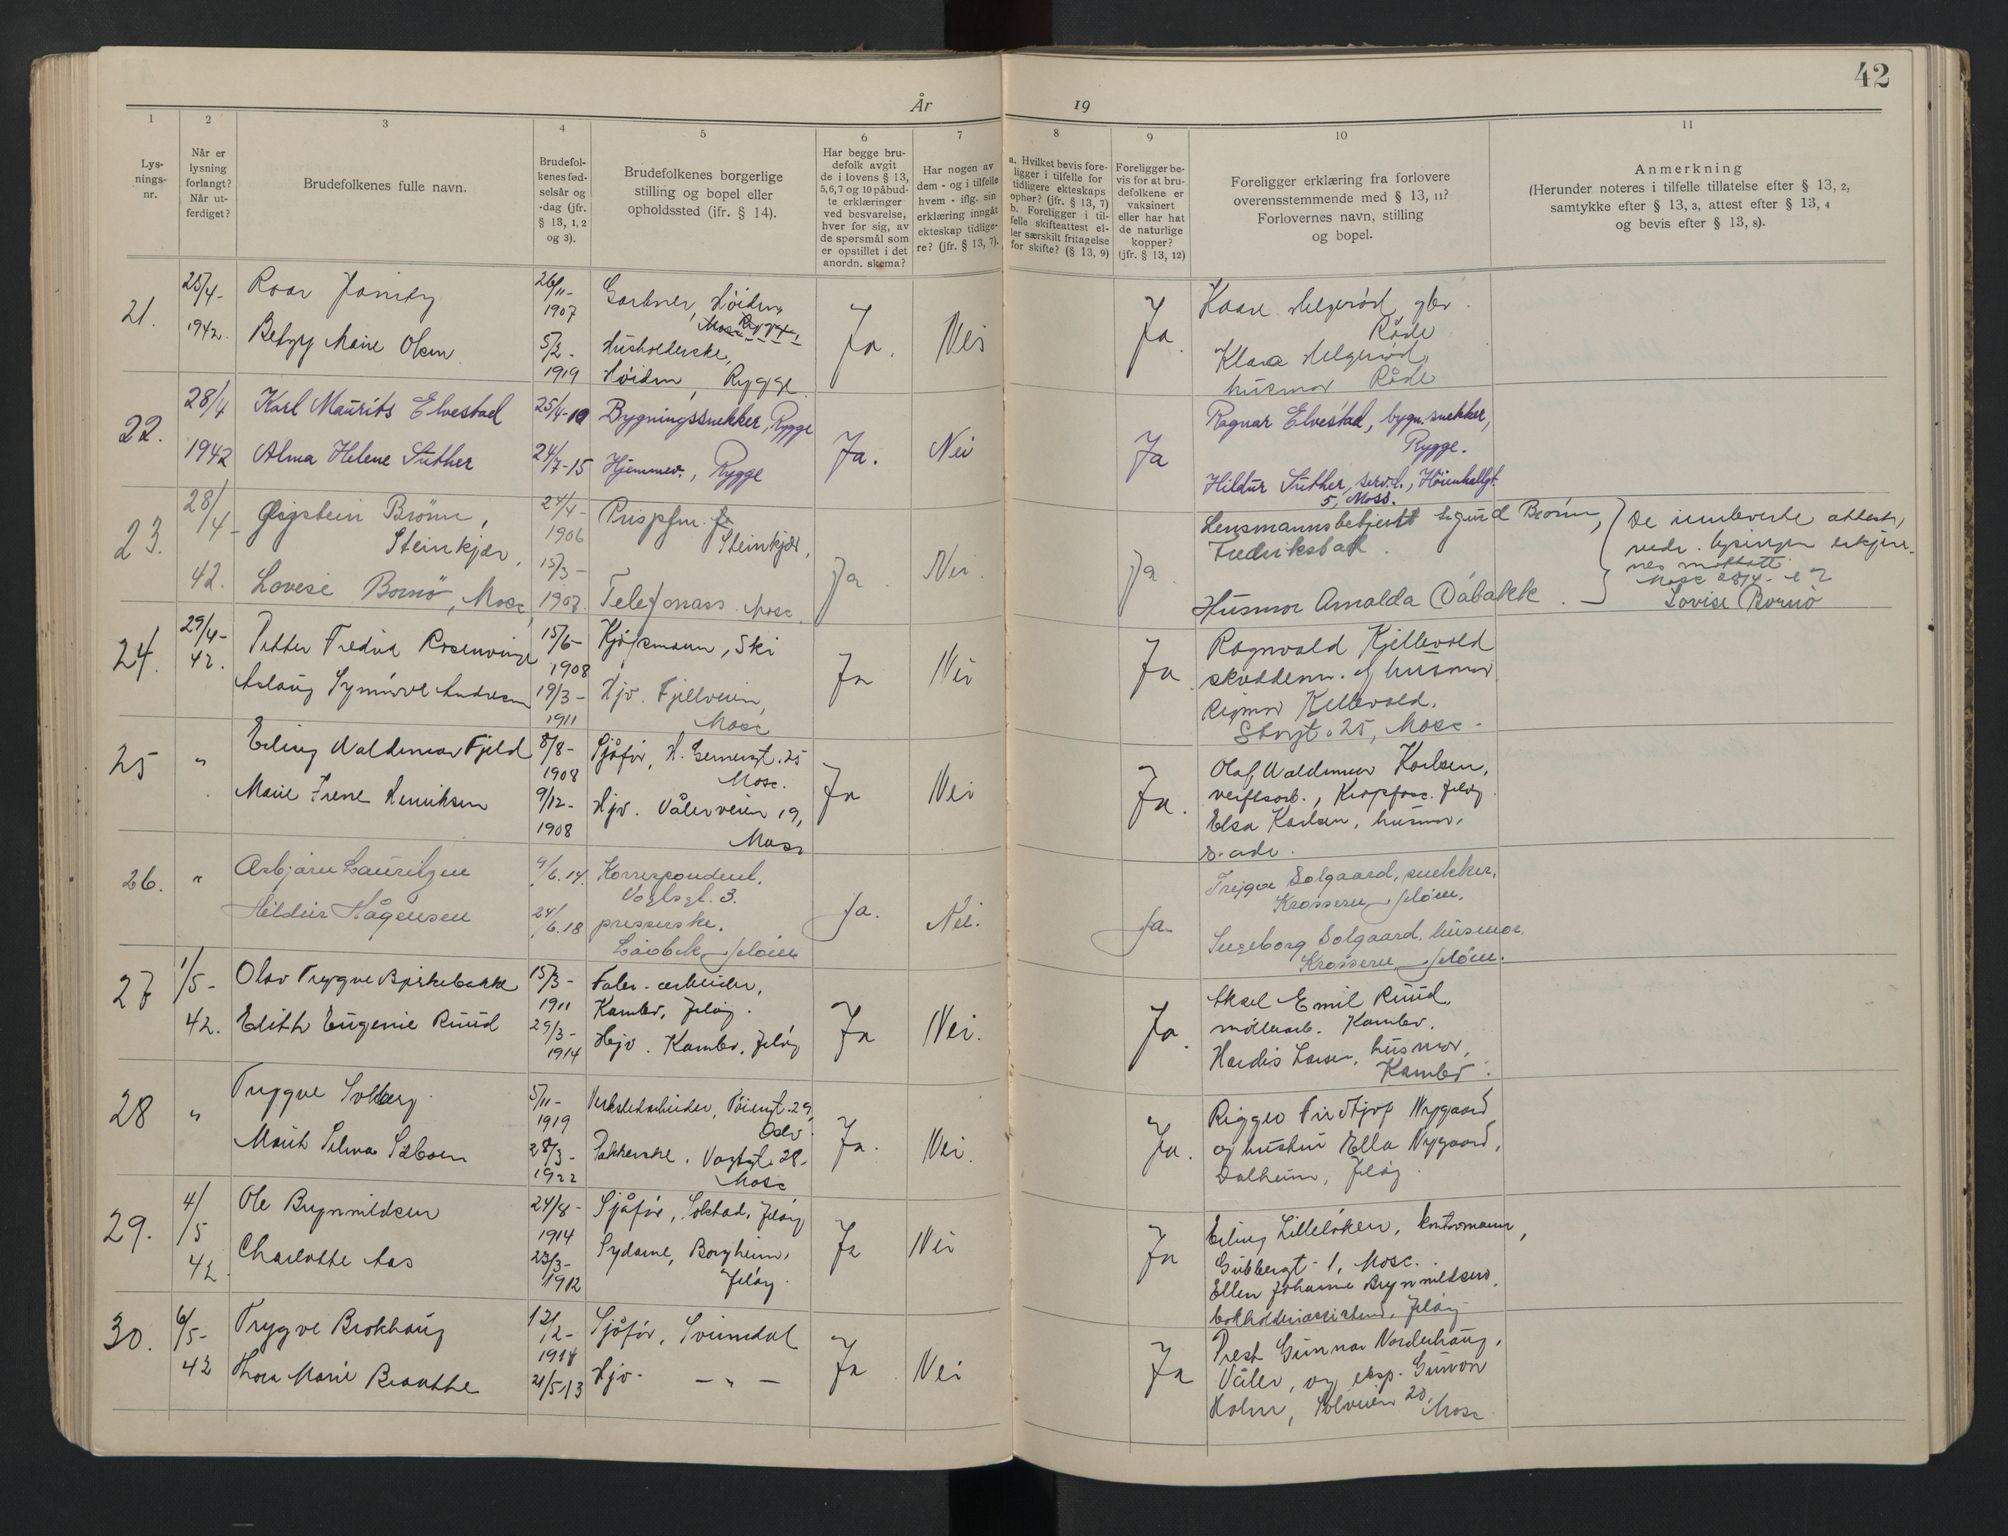 42
År 19
1 2 3 4 5 6 7 8 9 10 11
Lys-
nings-
nr.
Når er
lysning
forlangt?
Når ut-
ferdiget?
Brudefolkenes fulle navn.
Brudefol-
kenes fød-
selsår og
-dag (jfr.
§ 13, 1, 2
og 3).
Brudefolkenes borgerlige
stilling og bopel eller
opholdssted (jfr. § 14).
Har begge bru-
defolk avgit
de i lovens § 13,
5, 6, 7 og 10 påbud-
te erklæringer
ved besvarelse,
hver for sig, av
de spørsmål som
er opstillet i det
anordn. skema?
Har nogen av
dem - og i tilfelle
hvem - iflg. sin
erklæring inngått
ekteskap tidlige-
re? (jfr. § 13, 7).
a. Hvilket bevis fore-
ligger i tilfelle for
tidligere ekteskaps
ophør? (jfr. § 13, 7)
b. Foreligger i til-
felle skifteattest el-
ler særskilt fritagelse
for skifte? (§ 13, 9)
Foreligger be-
vis for at bru-
defolkene er
vaksinert
eller har hat
de naturlige
kopper?
(jfr. § 13, 12)
Foreligger erklæring fra forlovere
overensstemmende med § 13, 11?
Forlovernes navn, stilling
og bopel.
Anmerkning
(Herunder noteres i tilfelle tillatelse efter § 13, 2,
samtykke efter § 13, 3, attest efter § 13, 4
og bevis efter § 13, 8).
21. 25/4- 1942.
Roar
Marie Olsen
26/11- 1907
5/2- 1919
Gartner, Høiden,
Moss Rygge,
Husholderske,
Høiden, Rygge
Ja. Nei Ja.
Kaare Helgerød, gbr.
Råde
Klara Helgerød,
husmor Råde
22. 28/4 1942
Karl Maurits Elvestad
Alma Helene Suther
25/4-10
24/7-15
Bygningssnekker, Rygge
Hjemmev., Rygge
Ja. Nei Ja
Ragnar Elvestad, bygn.snekker,
Rygge.
Hildur Suther, serv.d., Høienhallgt.
5, Moss.
23. 28/4- 42.
Øigstein Brønn,
Steinkjær,
Lovise Bornø, Moss
24/4- 1906
15/3- 1907.
Steinkjær,
Telefonass. Moss.
Ja. Nei. Ja.
Lensmannsbetjent Sigurd Brønn,
Fredrikstad.
Husmor Arnalda Dåbakk.
De innleverte attester,
vedr. lysingen erkjen-
nes mottatt
Moss 28/4-42
Lovise Bornø
24. 29/4- 42.
Petter Fredrik Rosenvinge
Aslaug Synnøve Andresen
15/6- 1908
19/3- 1911
Kjøpmann, Ski
Hjv. Fjellveien,
Moss
Ja Nei Ja.
Ragnvald Kjellevold
og husmor
Rigmor Kjellevold.
Storgt. 25, Moss.
25 "
Erling Valdemar Fjeld
Marie Irene Henriksen
8/8- 1908
9/12- 1908
Sjåfør, H. Gernersgt. 25
Moss.
Hjv. Vålerveien 19,
Moss
Ja Nei Ja.
Olaf Valdemar Karlsen,
verftsarb., Jeløy.
Elsa Karlsen, husmor,
s. adr.
26. "
Asbjørn Lauritzen
Hildur Hågensen
9/6.14.
24/6.18
Korrespondent.
Vogtsgt. 3.
presserske.
Jeløen
Ja. Nei. Ja.
Trygve Solgaard, snekker,
Krosseren, Jeløen.
Ingeborg Solgaard, husmor,
Krosseren, Jeløen.
27 1/5- 42.
Olav Trygve Bjerkebakke
Edith Eugenie Ruud
15/3- 1911
29/3- 1914
Fabr.-arbeider,
Kambo, Jeløy.
Hjv. Kambo, Jeløy
Ja Nei. Ja.
Aksel Emil Ruud,
møllearb. Kambo.
Hardis Larsen, husmor,
Kambo.
28 "
Trygve Solberg
Marit Selma
5/11- 1919
28/3- 1922
Verkstedarbeider, Tøiengt. 29,
Oslo.
Pakkerske. Vogtsgt. 28-
Moss
Ja. Nei. Ja.
Fridtjof Nygaard
og hustru Ella Nygaard,
Dalheim, Jeløy.
29. 4/5 42.
Ole Brynmildsen
Charlotte Aas
24/8- 1914
23/3- 1912
Sjåfør, Solstad, Jeløy
Sydame, Borgheim,
Jeløy.
Ja Nei Ja
Erling Lilleløken, kontormann,
Gubbergt. 1, Moss.
Ellen Johanne Brynmildsen,
bokholderassistent, Jeløy
30. 6/5- 42
Trygve Brokhaug
Thora Marie Braathe
12/2- 1914
21/5 13
Sjåfør, Svinndal
Hjv. — " —
Ja Nei Ja
Prest Gunnar Norderhaug,
Våler, og eksp. Gunvor
Holm, Solveien 20,
Moss